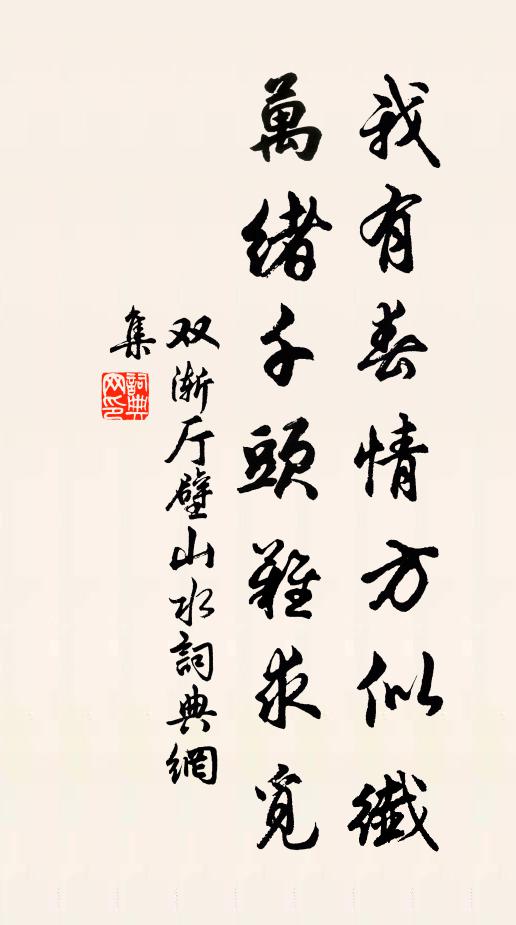 我有春情方似織
萬緒千頭難求覓
双漸厅壁山水詞典網
集
詞典网印